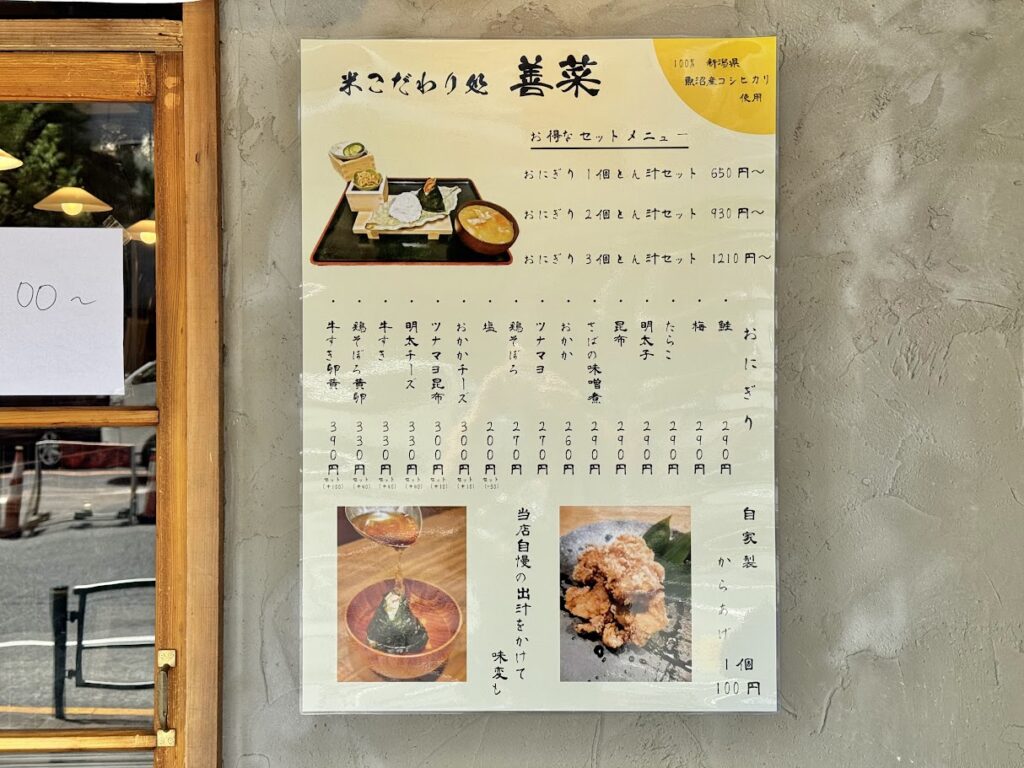 米こだわり処 善菜
100% 新潟県
魚沼産コシヒカリ
使用
お得なセットメニュー
おにぎり 1個とん汁セット 650円〜
おにぎり 2個とん汁セット 930円〜
おにぎり 3個とん汁セット 1210円〜
おにぎり
・鮭 290円
・梅 290円
・たらこ 290円
・明太子 290円
・昆布 290円
・さばの味噌煮 290円
・おかか 260円
・ツナマヨ 270円
・鶏そぼろ 270円
・塩 200円 セット(-50)
・おかかチーズ 300円 セット(+10)
・ツナマヨ昆布 300円 セット(+10)
・明太チーズ 330円 セット(+40)
・牛すき 330円 セット(+40)
・鶏そぼろ黄卵 330円 セット(+40)
・牛すき卵黄 390円 セット(+100)
自家製
からあげ
1個
100円
当店自慢の出汁をかけて
味変も
00〜